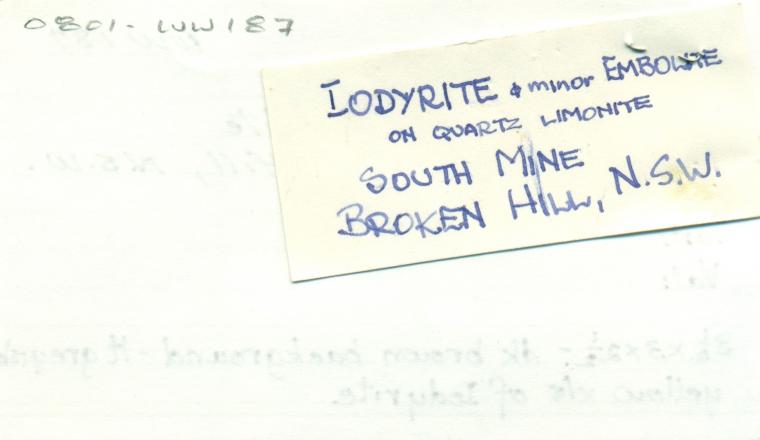 0801-WW187
IODYRITE & minor EMBOLITE
ON QUARTZ LIMONITE
SOUTH MINE
BROKEN HILL, N.S.W.
Vol:
3½ x 3 x 2½ - dk brown background - lt greyish
yellow xls of Iodyrite.